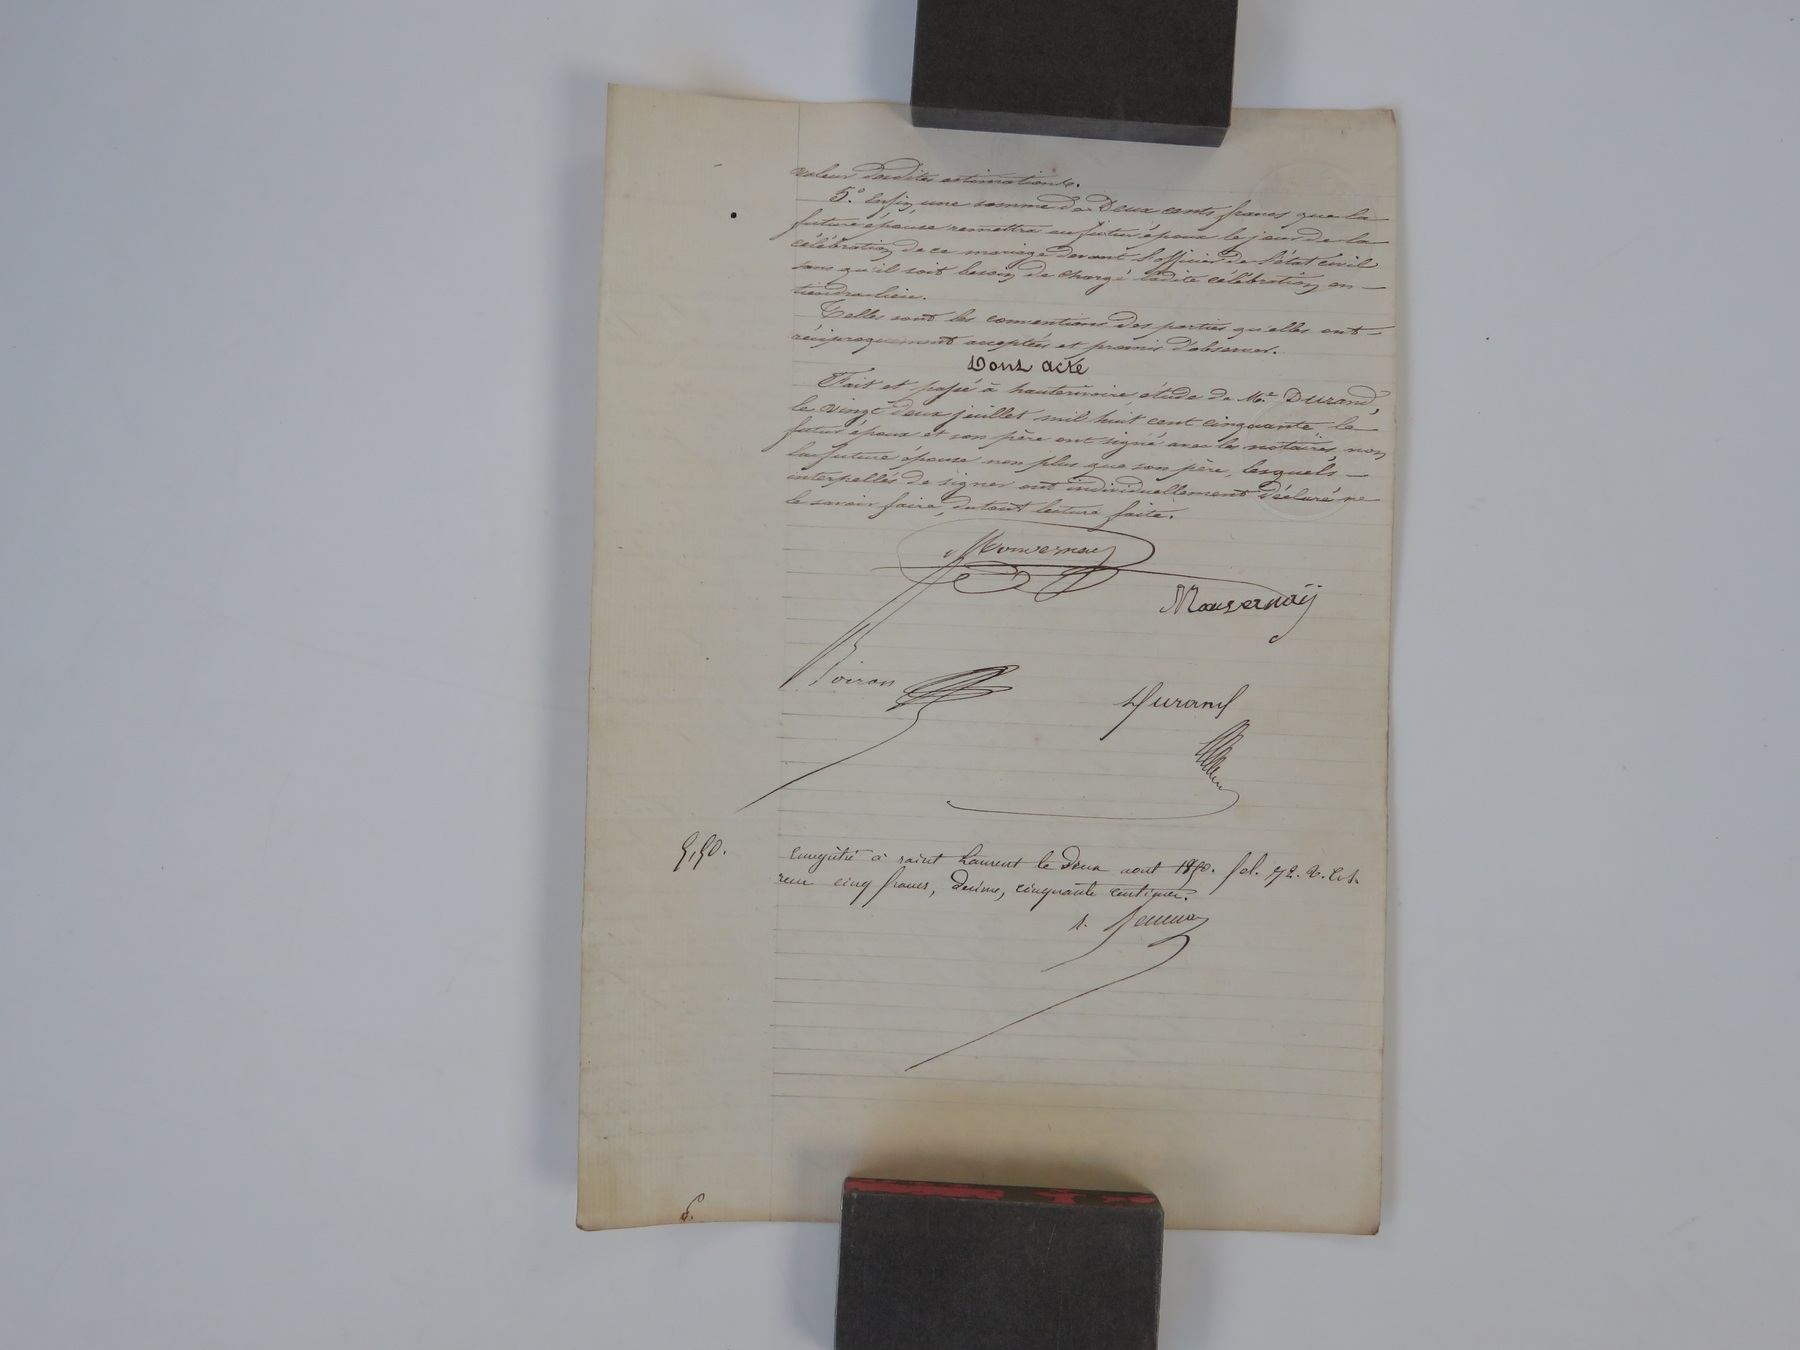 valeur desdites estimations.
5.° Enfin une somme de Deux cents francs que la
future épouse remettra au futur époux le jour de la
célébration de ce mariage devant l'officier de l'état civil
sans qu'il soit besoin de charge ladite célébration en
tiendra lieu.
Telles sont les conventions des parties qu'elles ont
réciproquement acceptées et promis d'observer.
Dont acte
Fait et passé à hauterivoire, étude de Me. Durand,
le vingt deux juillet mil huit cent cinquante, le
futur époux et son père ont signé avec les notaires, non
la future épouse non plus que son père, lesquels
interpellés de signer ont individuellement déclaré ne
le savoir faire, du tout lecture faite.
Mouvernay
Mouvernaÿ
Voiron
Durand
5,50.
Enregistré à saint Laurent le Deux aout 1850. fol. 72. v. c. 1.
reçu cinq francs, décime, cinquante centimes.